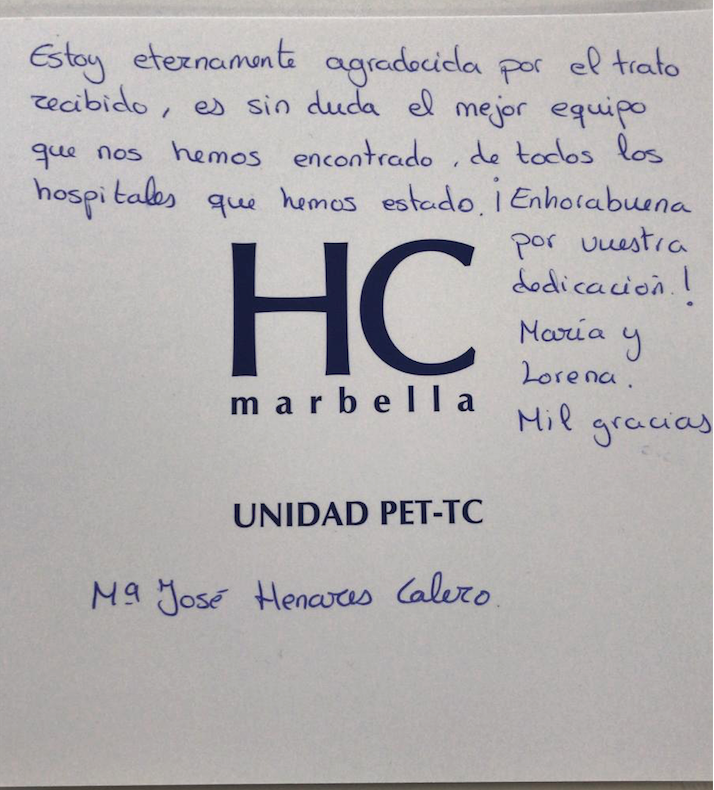 Estoy eternamente agradecida por el trato
recibido, es sin duda el mejor equipo
que nos hemos encontrado, de todos los
hospitales que hemos estado. ¡Enhorabuena
por vuestra
dedicación.!
María y
Lorena.
Mil gracias
HC
marbella
UNIDAD PET-TC
Mª José Henares Calero.